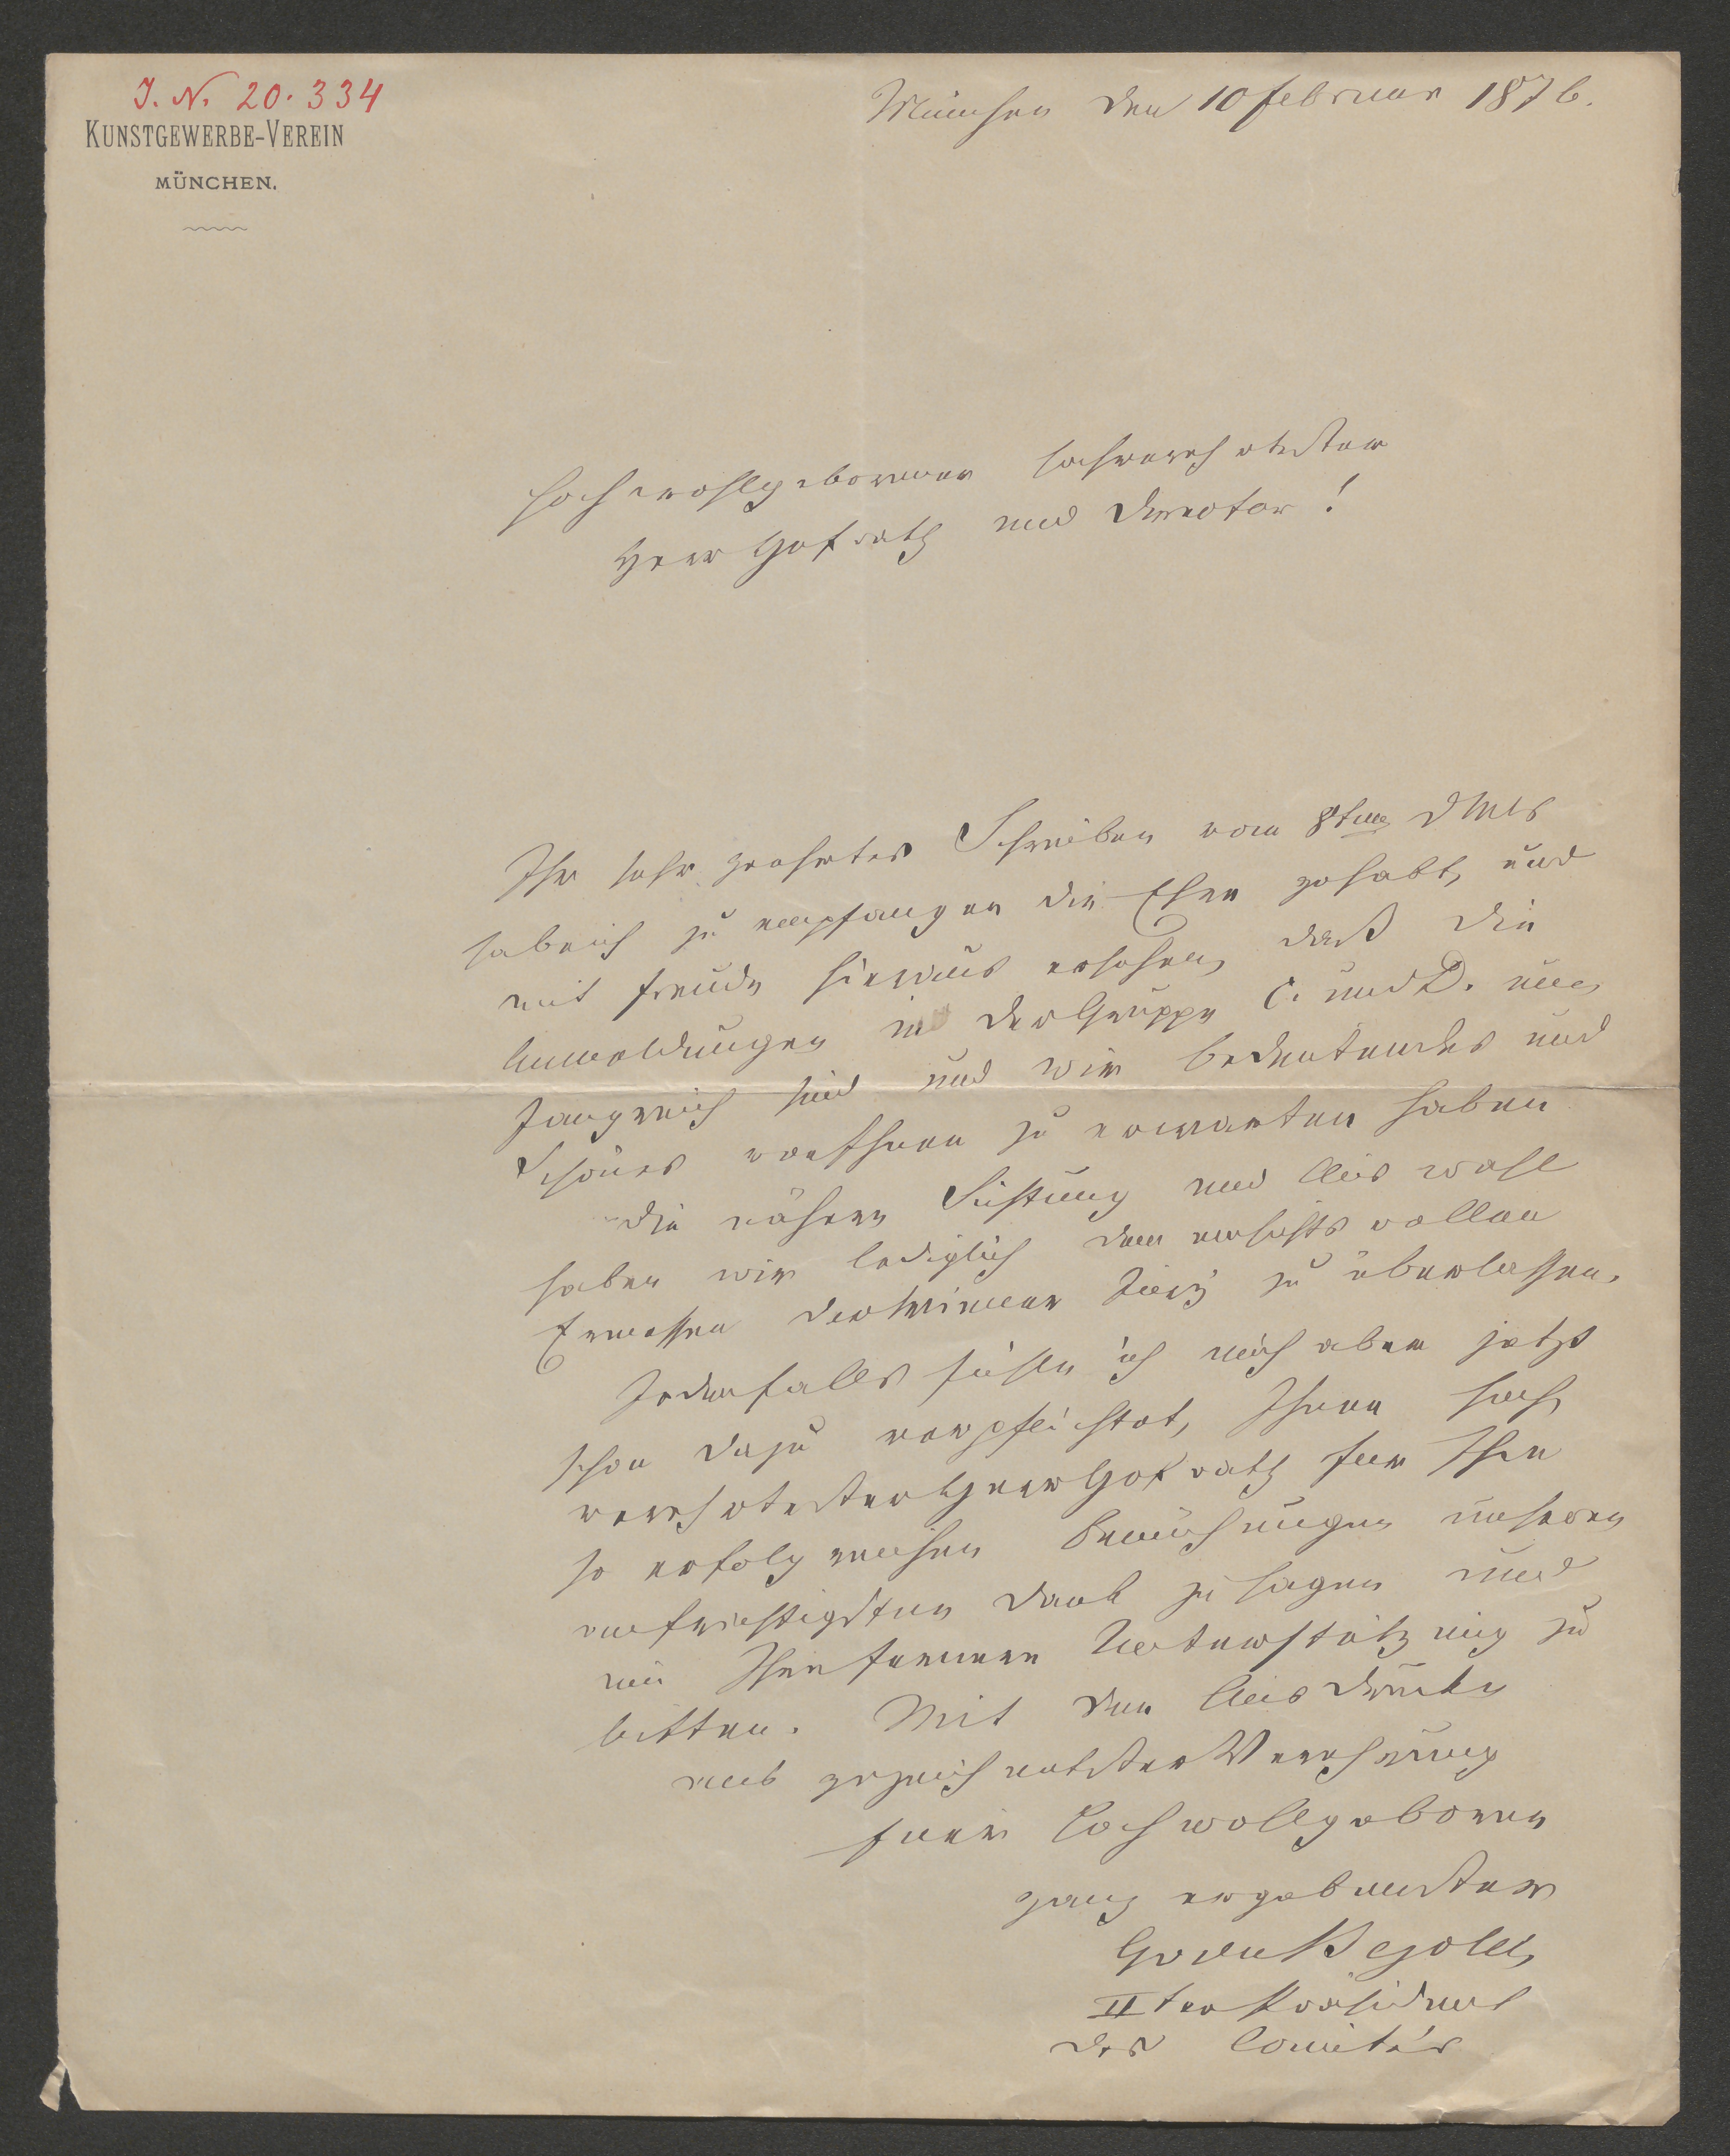 J. N. 20.334
KUNSTGEWERBE-VEREIN
MÜNCHEN.
München den 10 Februar 1876.
Hochwohlgeborener hochverehrtester
Herr Hofrath und Director!
Ihr sehr geehrtes Schreiben vom 8ten d Mts
habe ich zu empfangen die Ehre gehabt, und
mit Freude hieraus ersehen, daß die
Anmeldungen in der Gruppe C. und D. um
fangreich sind und wir bedeutendes und
Schönes von Ihnen zu erwarten haben
die nähere Sichtung und Auswahl
haben wir lediglich dem einsichtsvollen
Ermessen der Wiener Jury zu überlassen.
Jedenfalls fühle ich mich aber jetzt
schon dazu verpflichtet, Ihnen hoch
verehrtester Herr Hofrath fuer Ihre
so erfolgreichen Bemühungen unseren
aufrichtigsten Dank zu sagen und
um Ihre fernere Unterstützung zu
bitten. Mit dem Ausdrucke
ausgezeichnetster Verehrung
Euer Hochwohlgeboren
ganz ergebenster
IIter Präsident
des Comités